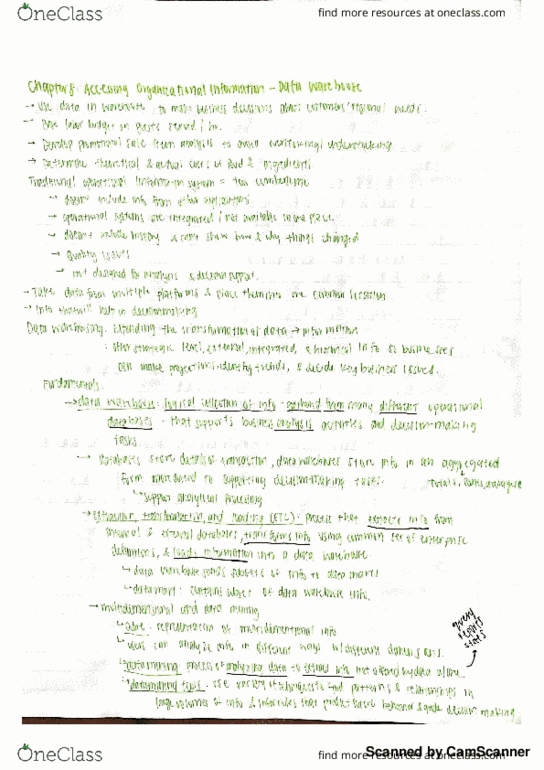 OneClass
find more resources at oneclass.com
Chapter 8: Accessing Organizational Information - Data Warehouse
→ Use data in warehouse to make business decisions about customers' regional needs.
→ labor budget on guests served / hr.
→ Develop promotional sale item analysis to avoid
→ Determine theoretical & actual costs of food & ingredients
Traditional operational information system = too cumbersome
→ doesn't include info from other applications
→ operational systems are integrated / not available in one place.
→ doesn't include history & can't show how & why things changed
→ Quality issues
→ not designed for analysis & decision support.
→ Take data from multiple platforms & place them in one common location
→ Info help in decisionmaking
Data warehousing: Extending the transformation of data → information
: offer strategic level, external, integrated, & historical info so businesses
can make projections, identify trends, & decide key business issues.
Fundamentals
→ data warehouse: logical collection of info - gathered from many different operational
databases - that supports business analysis activities and decision-making
tasks.
→ Databases store details of transaction, data warehouses store info in an aggregated
form mandated to supporting decision-making tasks. totals, counts, average
↳ support analytical processing
→ extraction, transformation, and loading (ETL): process that extracts info from
internal & external databases, transforms info using common set of enterprise
definitions, & loads information into a data warehouse.
↳ data warehouse sends subsets of info to data marts
↳ data mart: contains subset of data warehouse info.
→ multidimentional and data mining
↳ cube: representation of multidimentional info
↳ users can analyze info in different ways w/ different dimensions.
↳ data mining: process of analyzing data to extract info not offered by data alone.
query
reports
stats
↳ datamining tools: use variety of techniques to find patterns & relationships in
large volumes of info & infer rules that predict future behavior & guide decision making
OneClass
find more resources at oneclass.com
Scanned by CamScanner